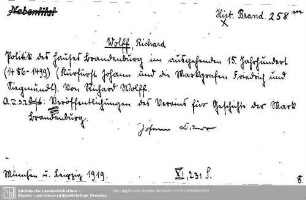 Nebentitel
Hist. Brand. 258 m
Wolff, Richard
Politik des Hauses Brandenburg im ausgehenden 15. Jahrhundert
(1486-1499) (Kurfürst Johann und die Markgrafen Friedrich und
Siegmund). Von Richard Wolff.
Veröffentlichungen des Vereins für Geschichte der Mark
Brandenburg.
München u. Leipzig 1919.
XI, 231 S.
8.